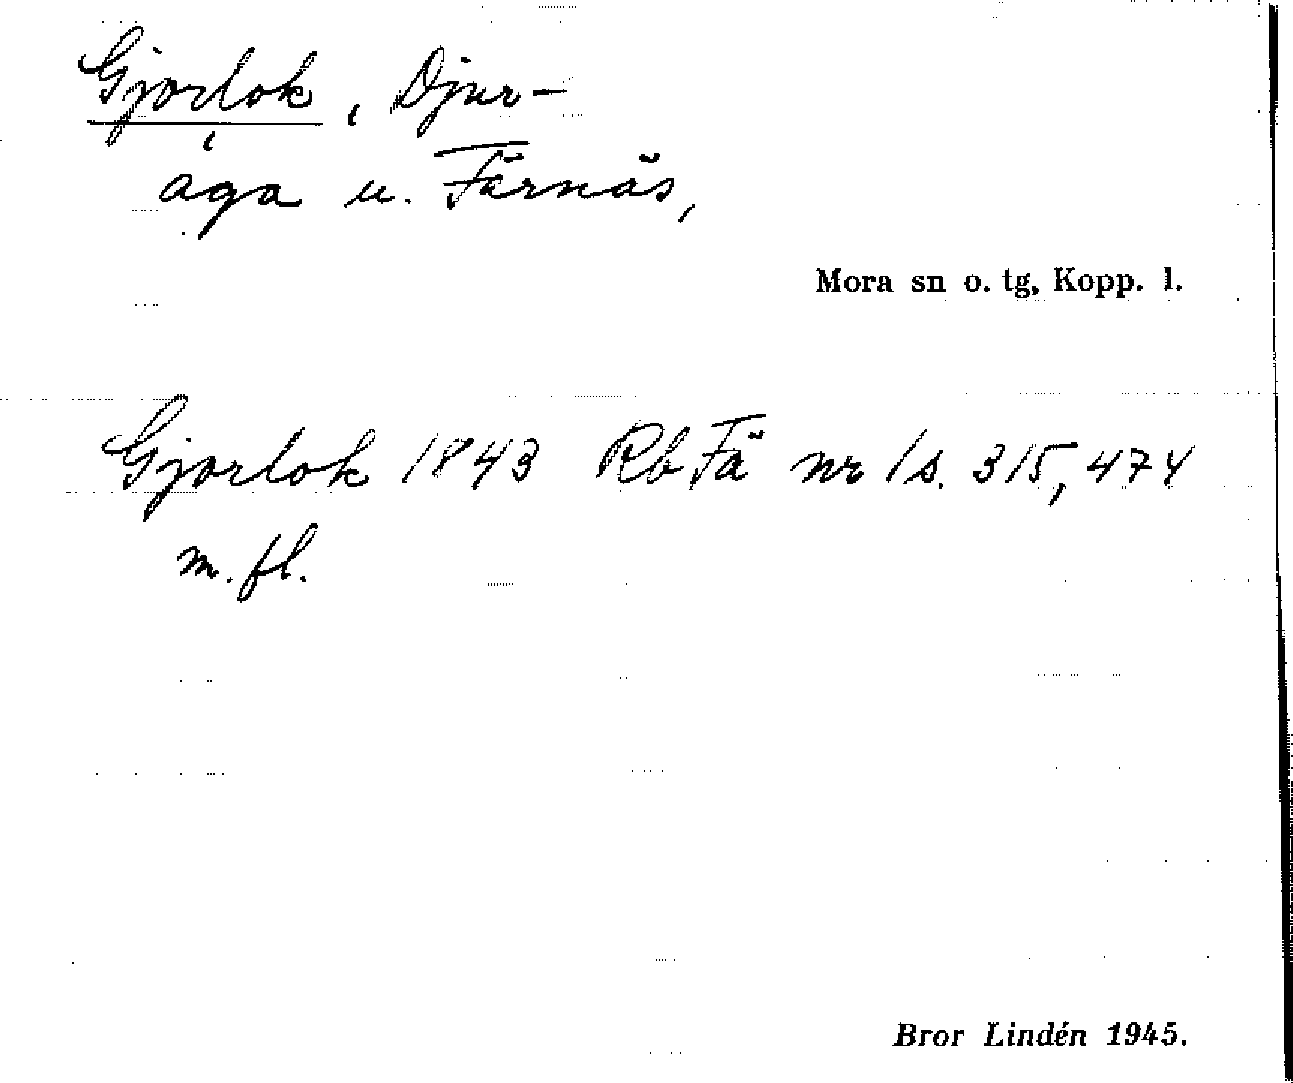 Gjorlok, Djur-
aga u. Färnäs,
Mora sn o. tg, Kopp. l.
Gjorlok 1843 Rb Fä nr 1 s. 315, 474
m. fl.
Bror Lindén 1945.